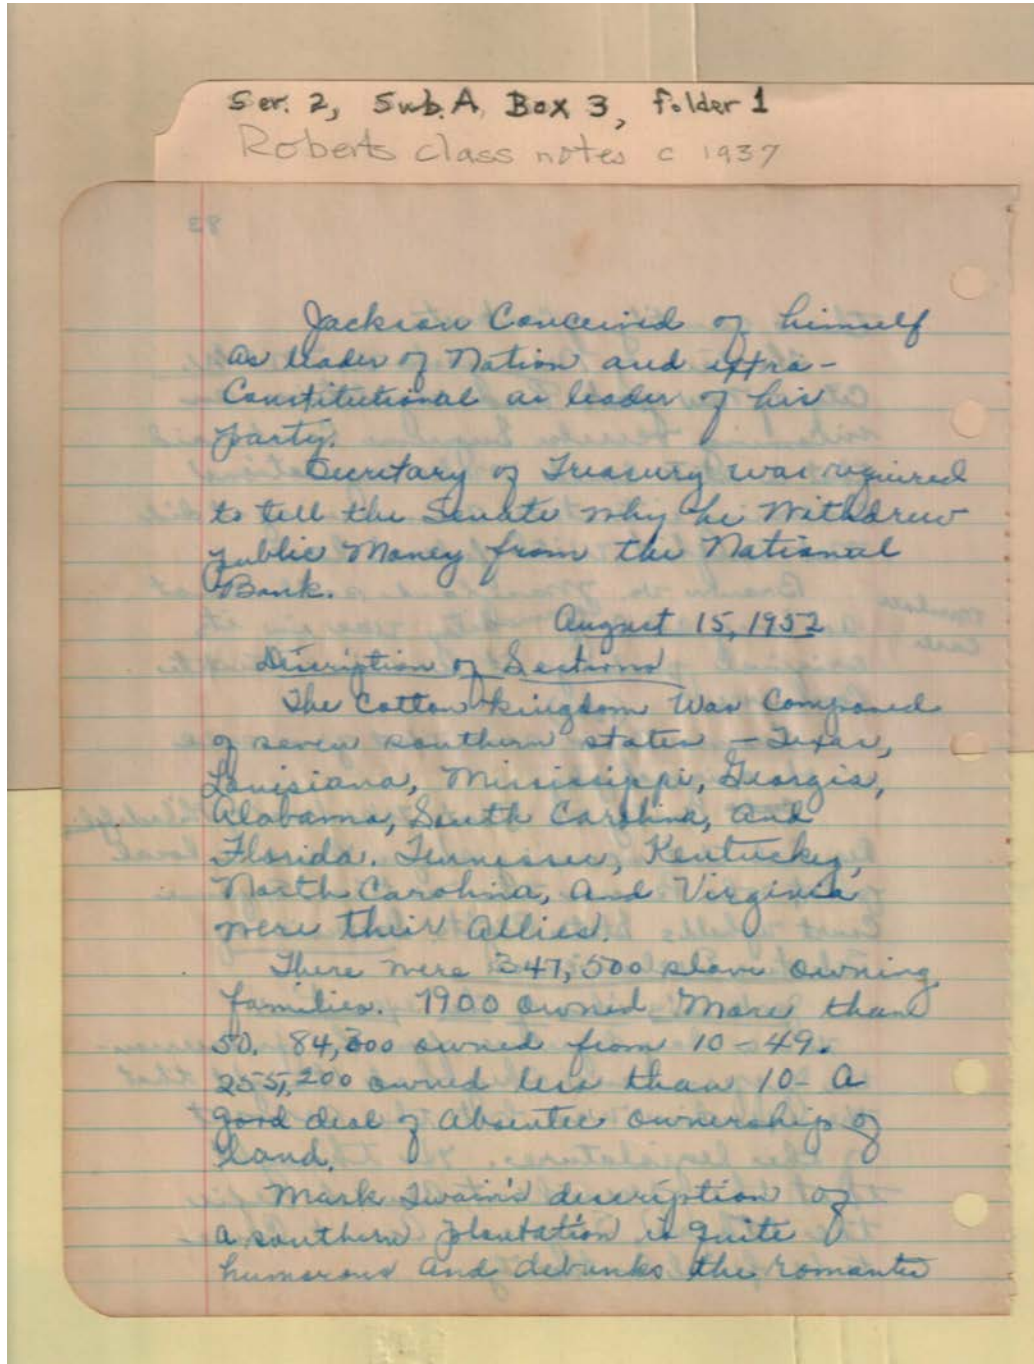 Ser. 2, Sub. A, Box 3, folder 1
Roberts class notes c 1937
83
Jackson Conceived of himself
as leader of Nation and extra-
Constitutional as leader of his
party.
Secretary of Treasury was required
to tell the Senate why he Withdrew
public Money from the National
Bank.
August 15, 1952
Description of Sections
The Cotton kingdom Was Composed
of seven southern states – Texas,
Louisiana, Mississippi, Georgia,
Alabama, South Carolina, and
Florida. Tennessee, Kentucky,
North Carolina, and Virginia
were their allies.
There were 347,500 slave owning
families. 1900 owned More than
50. 84,300 owned from 10-49.
255,200 owned less than 10- A
good deal of absentee ownership of
land.
Mark Twain's description of
a southern plantation is quite
humorous and debunks the romantic